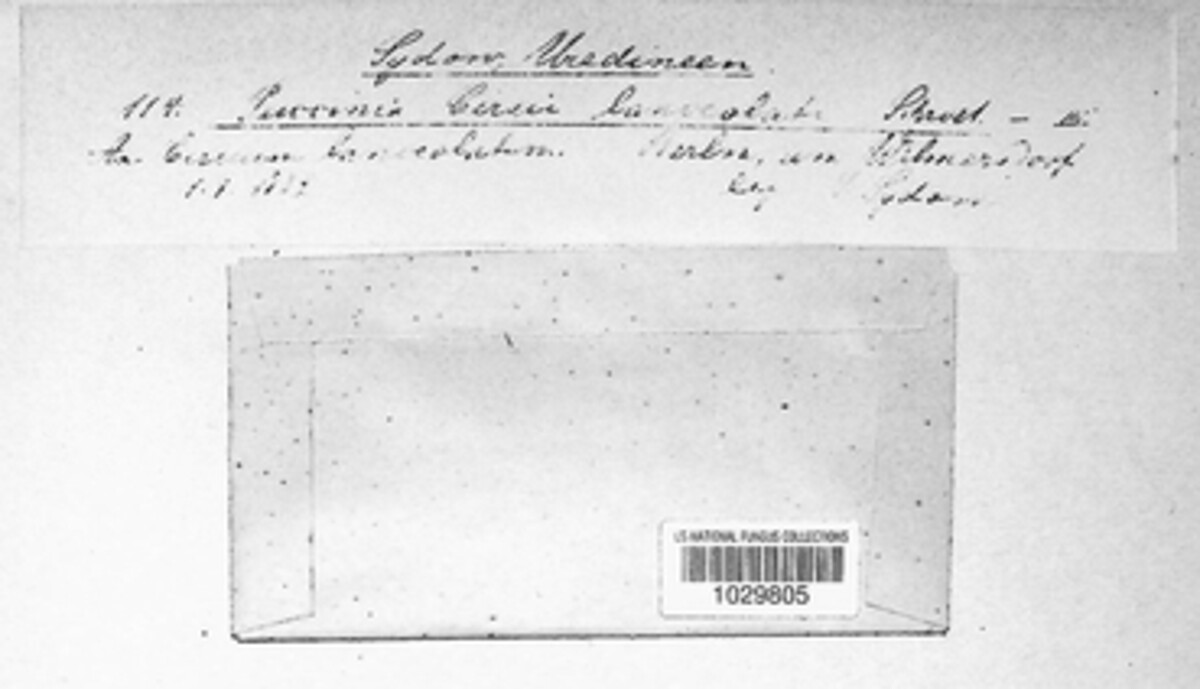 Sydow, Uredineen
114. Puccinia Cirsii lanceolati Schroet. – III.
An Cirsium lanceolatum. Berlin, um Wilmersdorf
leg. Sydow
US NATIONAL FUNGUS COLLECTIONS
1029805